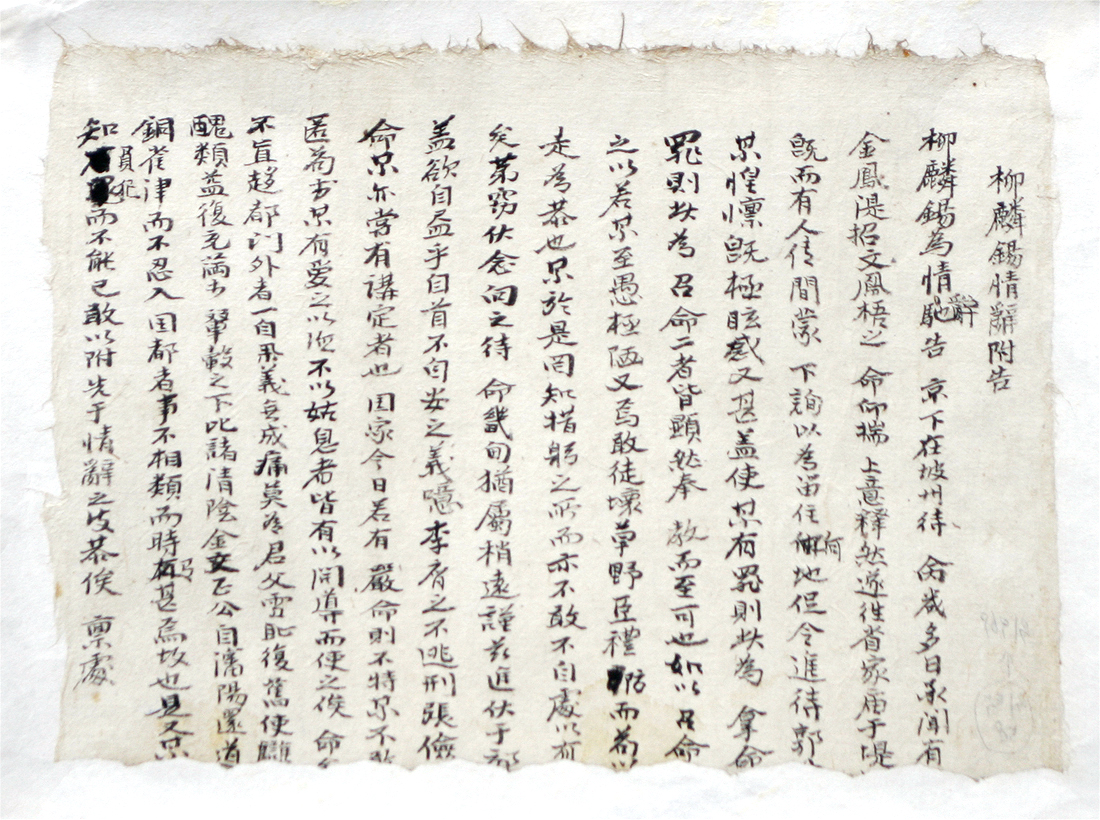 柳麟錫情辭附告
柳麟錫為情辭馳告 京下在坡州待 命歲多日承聞有
金鳳湜招文鳳梧之 命仰揣 上意釋然遂往省家庙于是
旣而有人傳聞蒙 下詢以為留住何地但令進待郭
某惶懍旣極眩惑又甚盖使某有罪則此為 拿命
罪則此為 召命二者皆顯然奉 敎而至可也如以召命
之以若某至愚極陋又焉敢徒壞草野臣禮防而苟以
走為恭也某於是罔知措躬之所而亦不敢不自處以有
矣第窃伏念向之待 命幾旬猶屬稍遠謹玆進伏于
盖欲自益乎自首不自安之義噫李膺之不逃刑張儉
命某亦嘗有講定者也 国家今日若有 嚴命則不特某不敢
匿苟於某有愛之以 不以姑息者皆有以開導而使之俟 命
不直趍都门外者一自 義無成痛莫為君父雪耻復舊使
醜類益復充滿於 輦轂之下比諸清陰金文正公自瀋陽還道
銅雀津而不忍入国都者事不相類而時 甚焉故也見又某
知 而不能已敢以附先于情辭之 恭俟 禀處